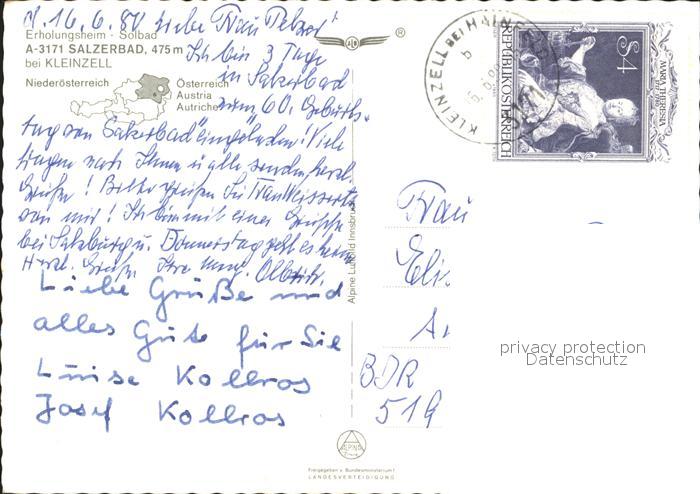 16.6.80 Liebe Frau Pelzer!
Erholungsheim · Solbad
A-3171 SALZERBAD, 475 m
bei KLEINZELL
Niederösterreich
Österreich
Austria
Autriche
Ich bin 3 Tage
in Salzerbad
zum 60. Geburts-
tag von Salzerbad eingeladen! Viele
fragen nach Ihnen u. alle senden herzl.
Grüße! Bitte grüßen Sie Frau
von mir! Ich bin mit einer Gruppe
bei Salzburg u. Donnerstag geht es heim
Herzl. Grüße Ihre
Liebe Grüße und
alles Gute für Sie
Luise Kollros
Josef Kollros
Alpine Luftbild Innsbruck
KLEINZELL BEI HAINF
b
S4
REPUBLIK ÖSTERREICH
MARIA THERESIA
Frau
Eli
A
BDR
519
privacy protection
Datenschutz
ALPINE
Freigegeben v. Bundesministerium f.
LANDESVERTEIDIGUNG